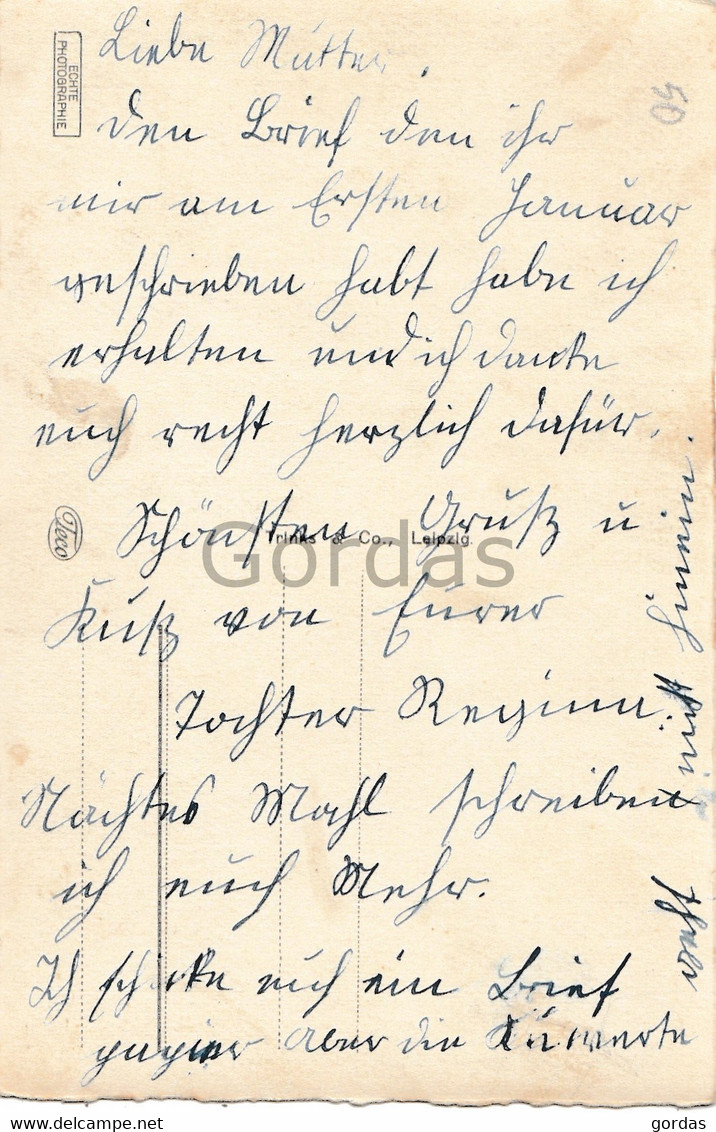 ECHTE
PHOTOGRAPHIE
50
Liebe Mutter.
Den Brief den ihr
mir am Ersten Januar
geschrieben habt habe ich
erhalten und ich danke
euch recht herzlich dafür.
Teco
Trinks & Co., Leipzig.
Gordas
Schönsten Gruß u
Kuß von Eurer
Tochter Regina.
Nächtes Mahl schreiben
ich euch Mehr.
Ich schicke euch ein Brief
papier aber die Kuwerte
geht nicht hinein.
gordas